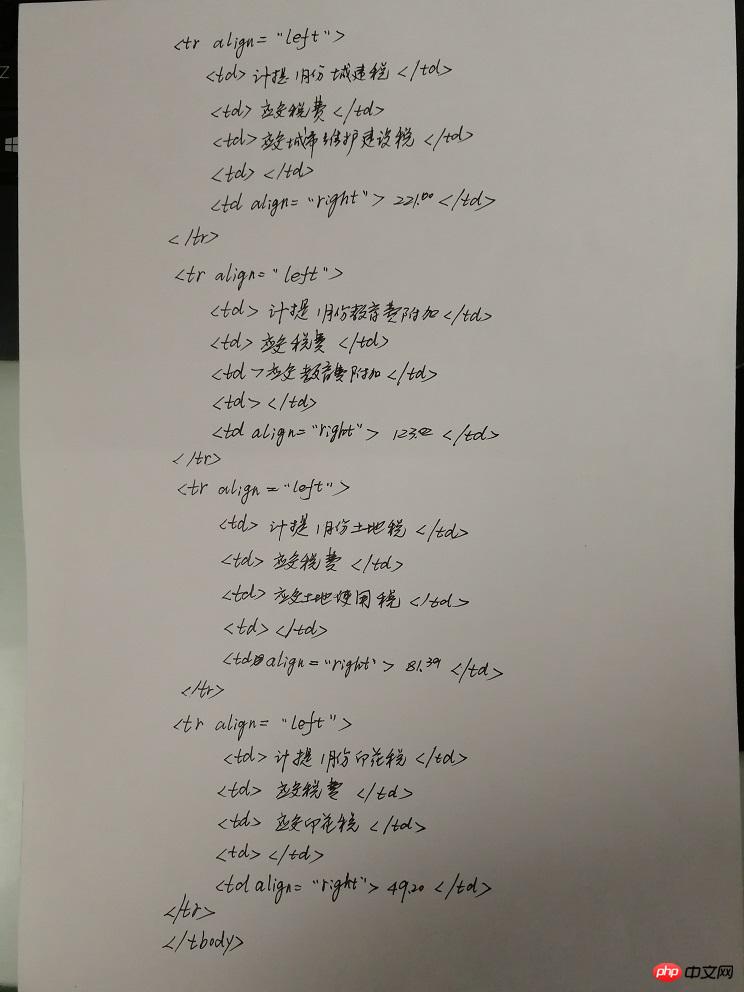 <tr align="left">
<td>计提1月份城建税</td>
<td>应交税费</td>
<td>应交城市维护建设税</td>
<td></td>
<td align="right">221.00</td>
</tr>
<tr align="left">
<td>计提1月份教育费附加</td>
<td>应交税费</td>
<td>应交教育费附加</td>
<td></td>
<td align="right"></td>
</tr>
<tr align="left">
<td>计提1月份土地税</td>
<td>应交税费</td>
<td>应交土地使用税</td>
<td></td>
<td align="right">81.39</td>
</tr>
<tr align="left">
<td>计提1月份印花税</td>
<td>应交税费</td>
<td>应交印花税</td>
<td></td>
<td align="right">49.20</td>
</tr>
</tbody>
php中文网